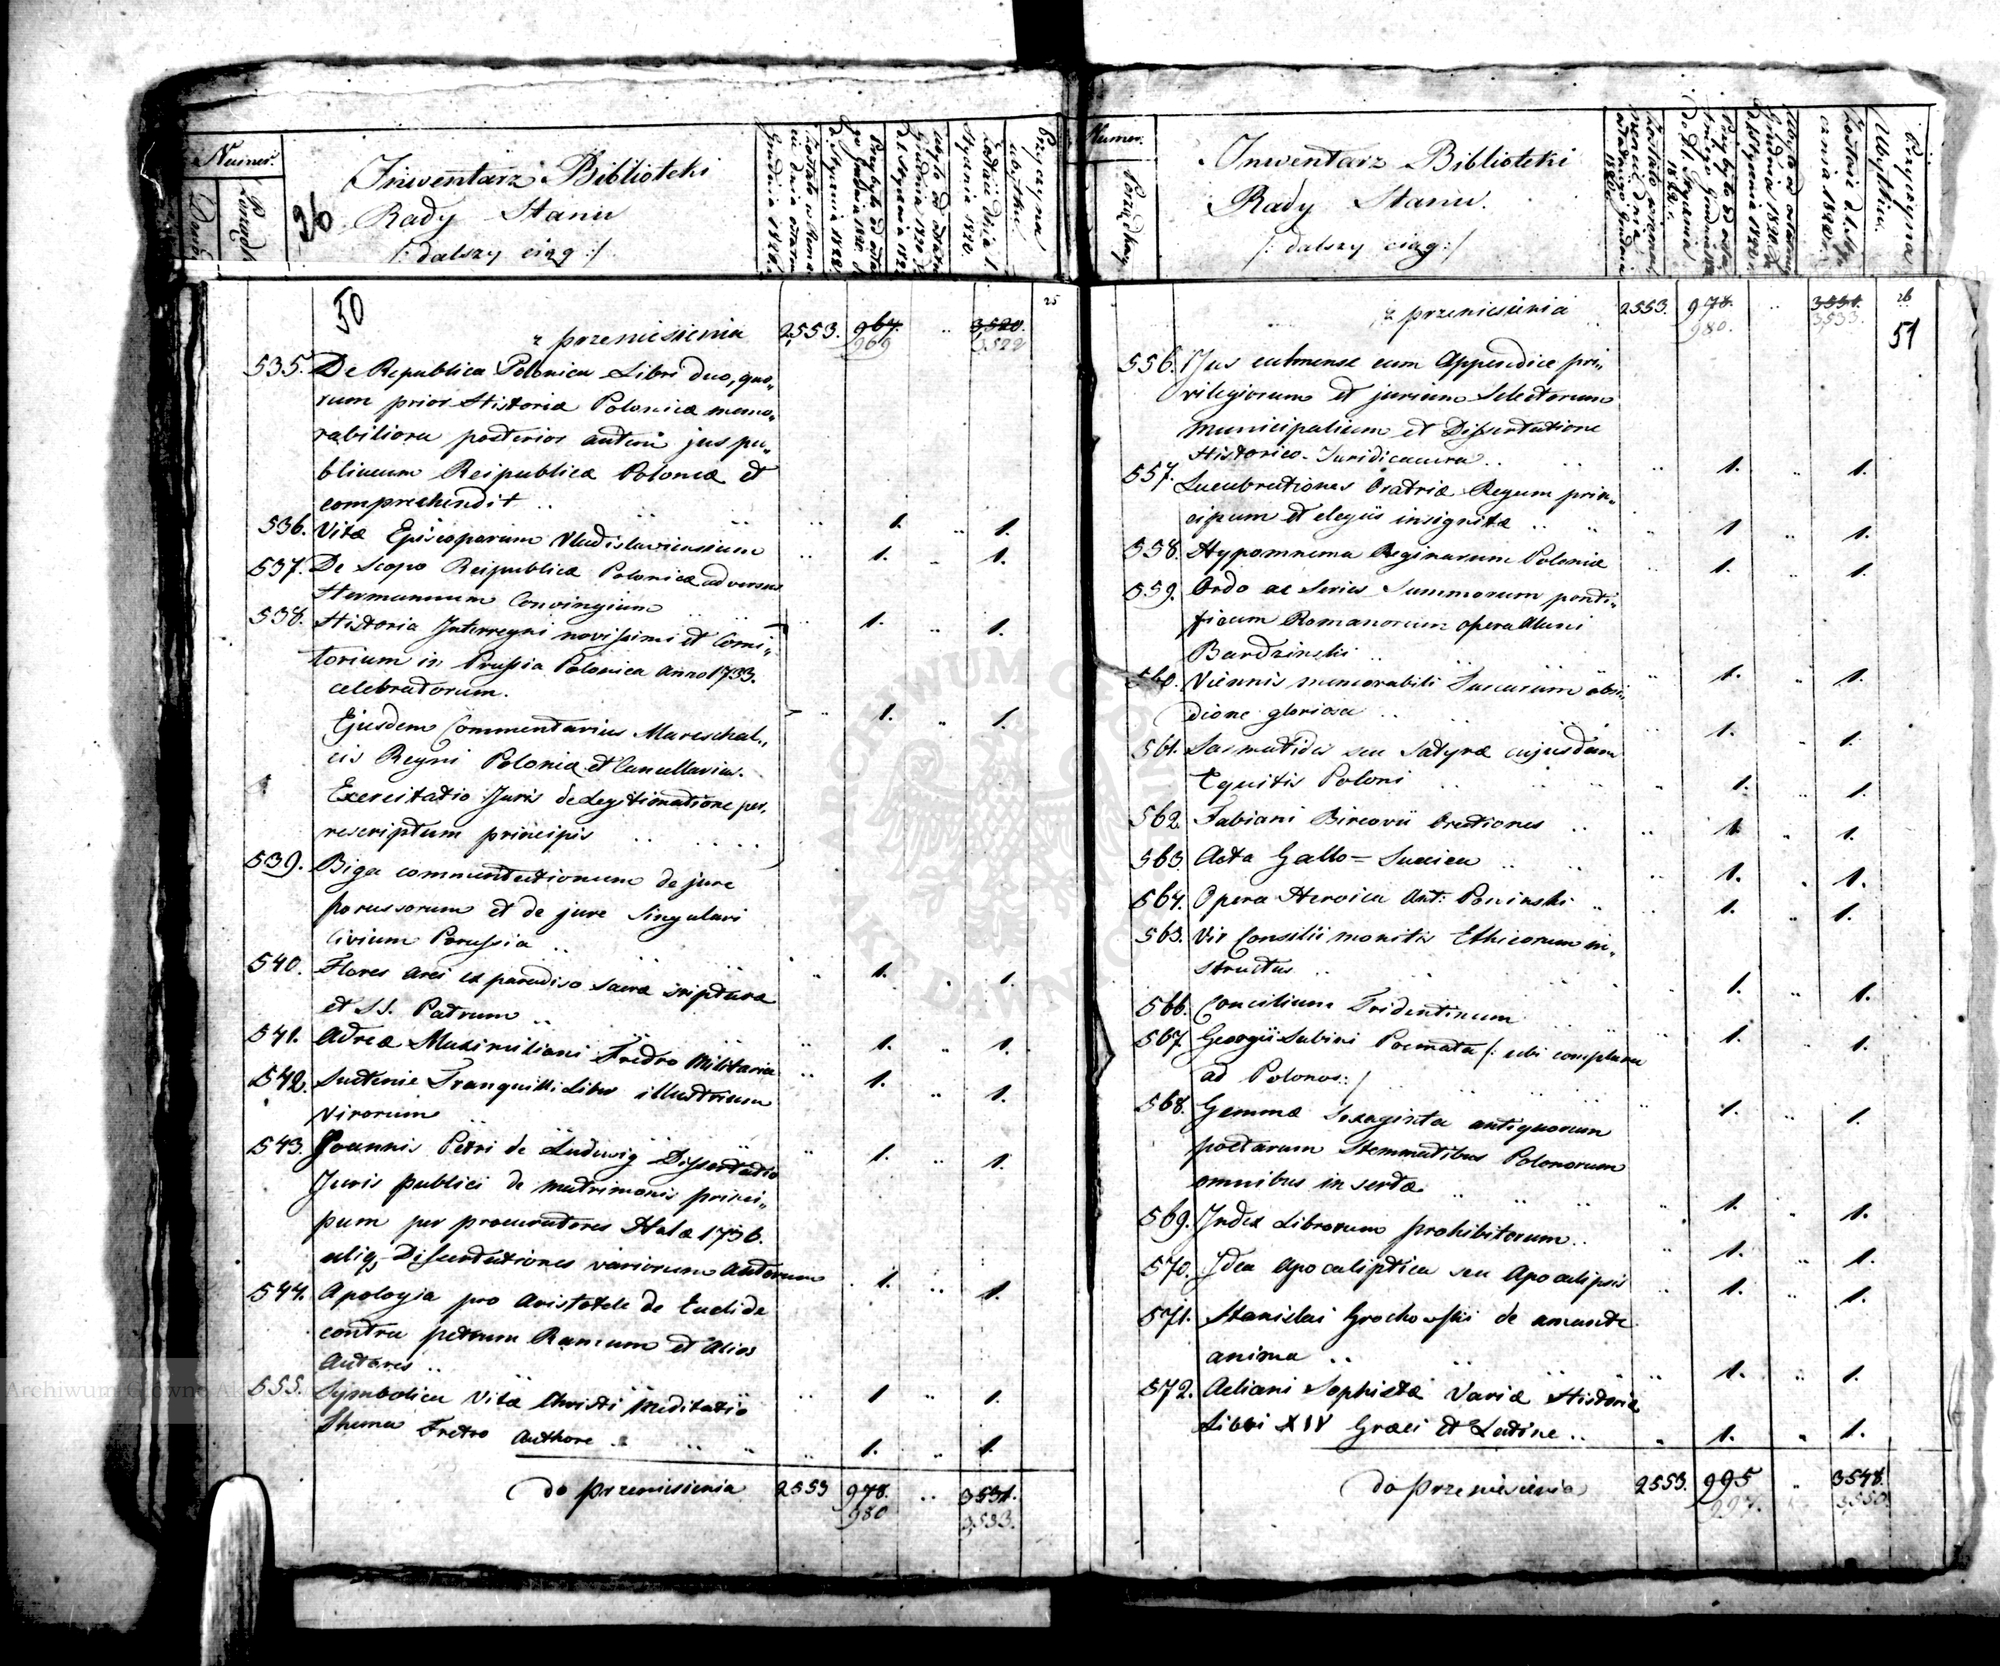 Numer.
Porządk.
Dawn.
26
Inwentarz Biblioteki
Rady Stanu
/: dalszy ciąg :/
Przyczyna
ubytku
50
25
z przeniesienia 2553. 967. .. 3520.
969 3522
535. De Republica Polonica Libri duo, quo„
rum prior Historiæ Polonicæ memo„
rabiliora posterior autem jus pu„
blicum Reipublicæ Polonæ et
comprehendit .. 1. .. 1.
536. Vitæ Episcoporum Vladislaviensium .. 1. .. 1.
537. De Scopo Reipublicæ Polonicæ adversus
Hermannum Conringium .. 1. .. 1.
538. Historia Interregni novissimi et Comi„
tiorium in Prussia Polonica Anno 1733.
celebratorum. .. 1. .. 1.
Ejusdem Commentarius Mareschal„
cis Regni Poloniæ et Cancellarius.
Exercitatio Juris de Legitimatione per
rescriptum principis ..
539. Biga commentationum de jure
porussorum et de jure Singulari
Civium Porussia .. 1. .. 1.
540. Flores Arei ex paradiso sacræ scripturæ
et SS. Patrum .. 1. .. 1.
541. Adreæ Maximiliani Fredro Militaria .. 1. .. 1.
542. Suetonie Tranquilli Liber illustrium
Virorum .. 1. .. 1.
543. Joannis Petri de Ludewig Dissertatio
Juris publici de matrimonis princi„
pum per procuratores Halæ 1736.
aliæq Dissertationes variorum Autorum .. 1. .. 1.
544. Apologia pro Aristotele de Euclide
contra petrum Ramum et Alios
Autores .. 1 .. 1.
555. Symbolica Vitæ Christi Meditatio
Thoma Tretro Authore .. 1. .. 1.
do przeniesienia 2553 978. .. 3531.
980 3533.
Numer.
Porządkowy
Inwentarz Biblioteki
Rady Stanu.
/: dalszy ciąg :/
Przyczyna
Ubytku.
26
51
z przeniesienia 2553. 978. .. 3531.
980. 3533.
556. Jus culmense cum Appendice pri„
vilegiorum et jurium Selectorum
Municipalium et Dissertatione
Historico-Juridicacura .. 1. .. 1.
557. Lucubrationes Oratriæ Regum prin„
cipum et elegiis insignitæ .. 1 .. 1.
558. Hypomnema Reginarum Poloniæ .. 1. .. 1.
559. Ordo ac Series Summorum ponti„
ficum Romanorum opera Aluni
Bardzinski .. 1. .. 1.
560. Viennis memorabili Turcarum obsi„
dione gloriosa .. 1. .. 1.
561. Sarmatides seu Satyræ cujusdam
Equitis Poloni .. 1. .. 1.
562. Fabiani Bircovii Orationes .. 1. .. 1.
563. Acta Gallo=Suecica .. 1. .. 1.
564. Opera Heroica Ant: Poninski .. 1. .. 1.
565. Vir Consilii monitis Ethicorum in„
structus .. 1. .. 1.
566. Concilium Tridentinum .. 1. .. 1.
567. Georgii Sabini Poemata /: ubi complura
ad Polonos :/ .. 1. .. 1.
568. Gemmæ Sexaginta antiquorum
poetarum Stemmatibus Polonorum
omnibus insertæ .. 1. .. 1.
569. Index Librorum prohibitorum .. 1. .. 1.
570. Idea Apocaliptica seu Apocalipsis 1. .. 1.
571. Stanislai Grochowski de amante
anima .. 1. .. 1.
572. Aeliani Sophistæ Variæ Historiæ
Libri XIV Græci et Latine .. 1. .. 1.
do przeniesienia 2553. 995 .. 3548.
997. 3550.